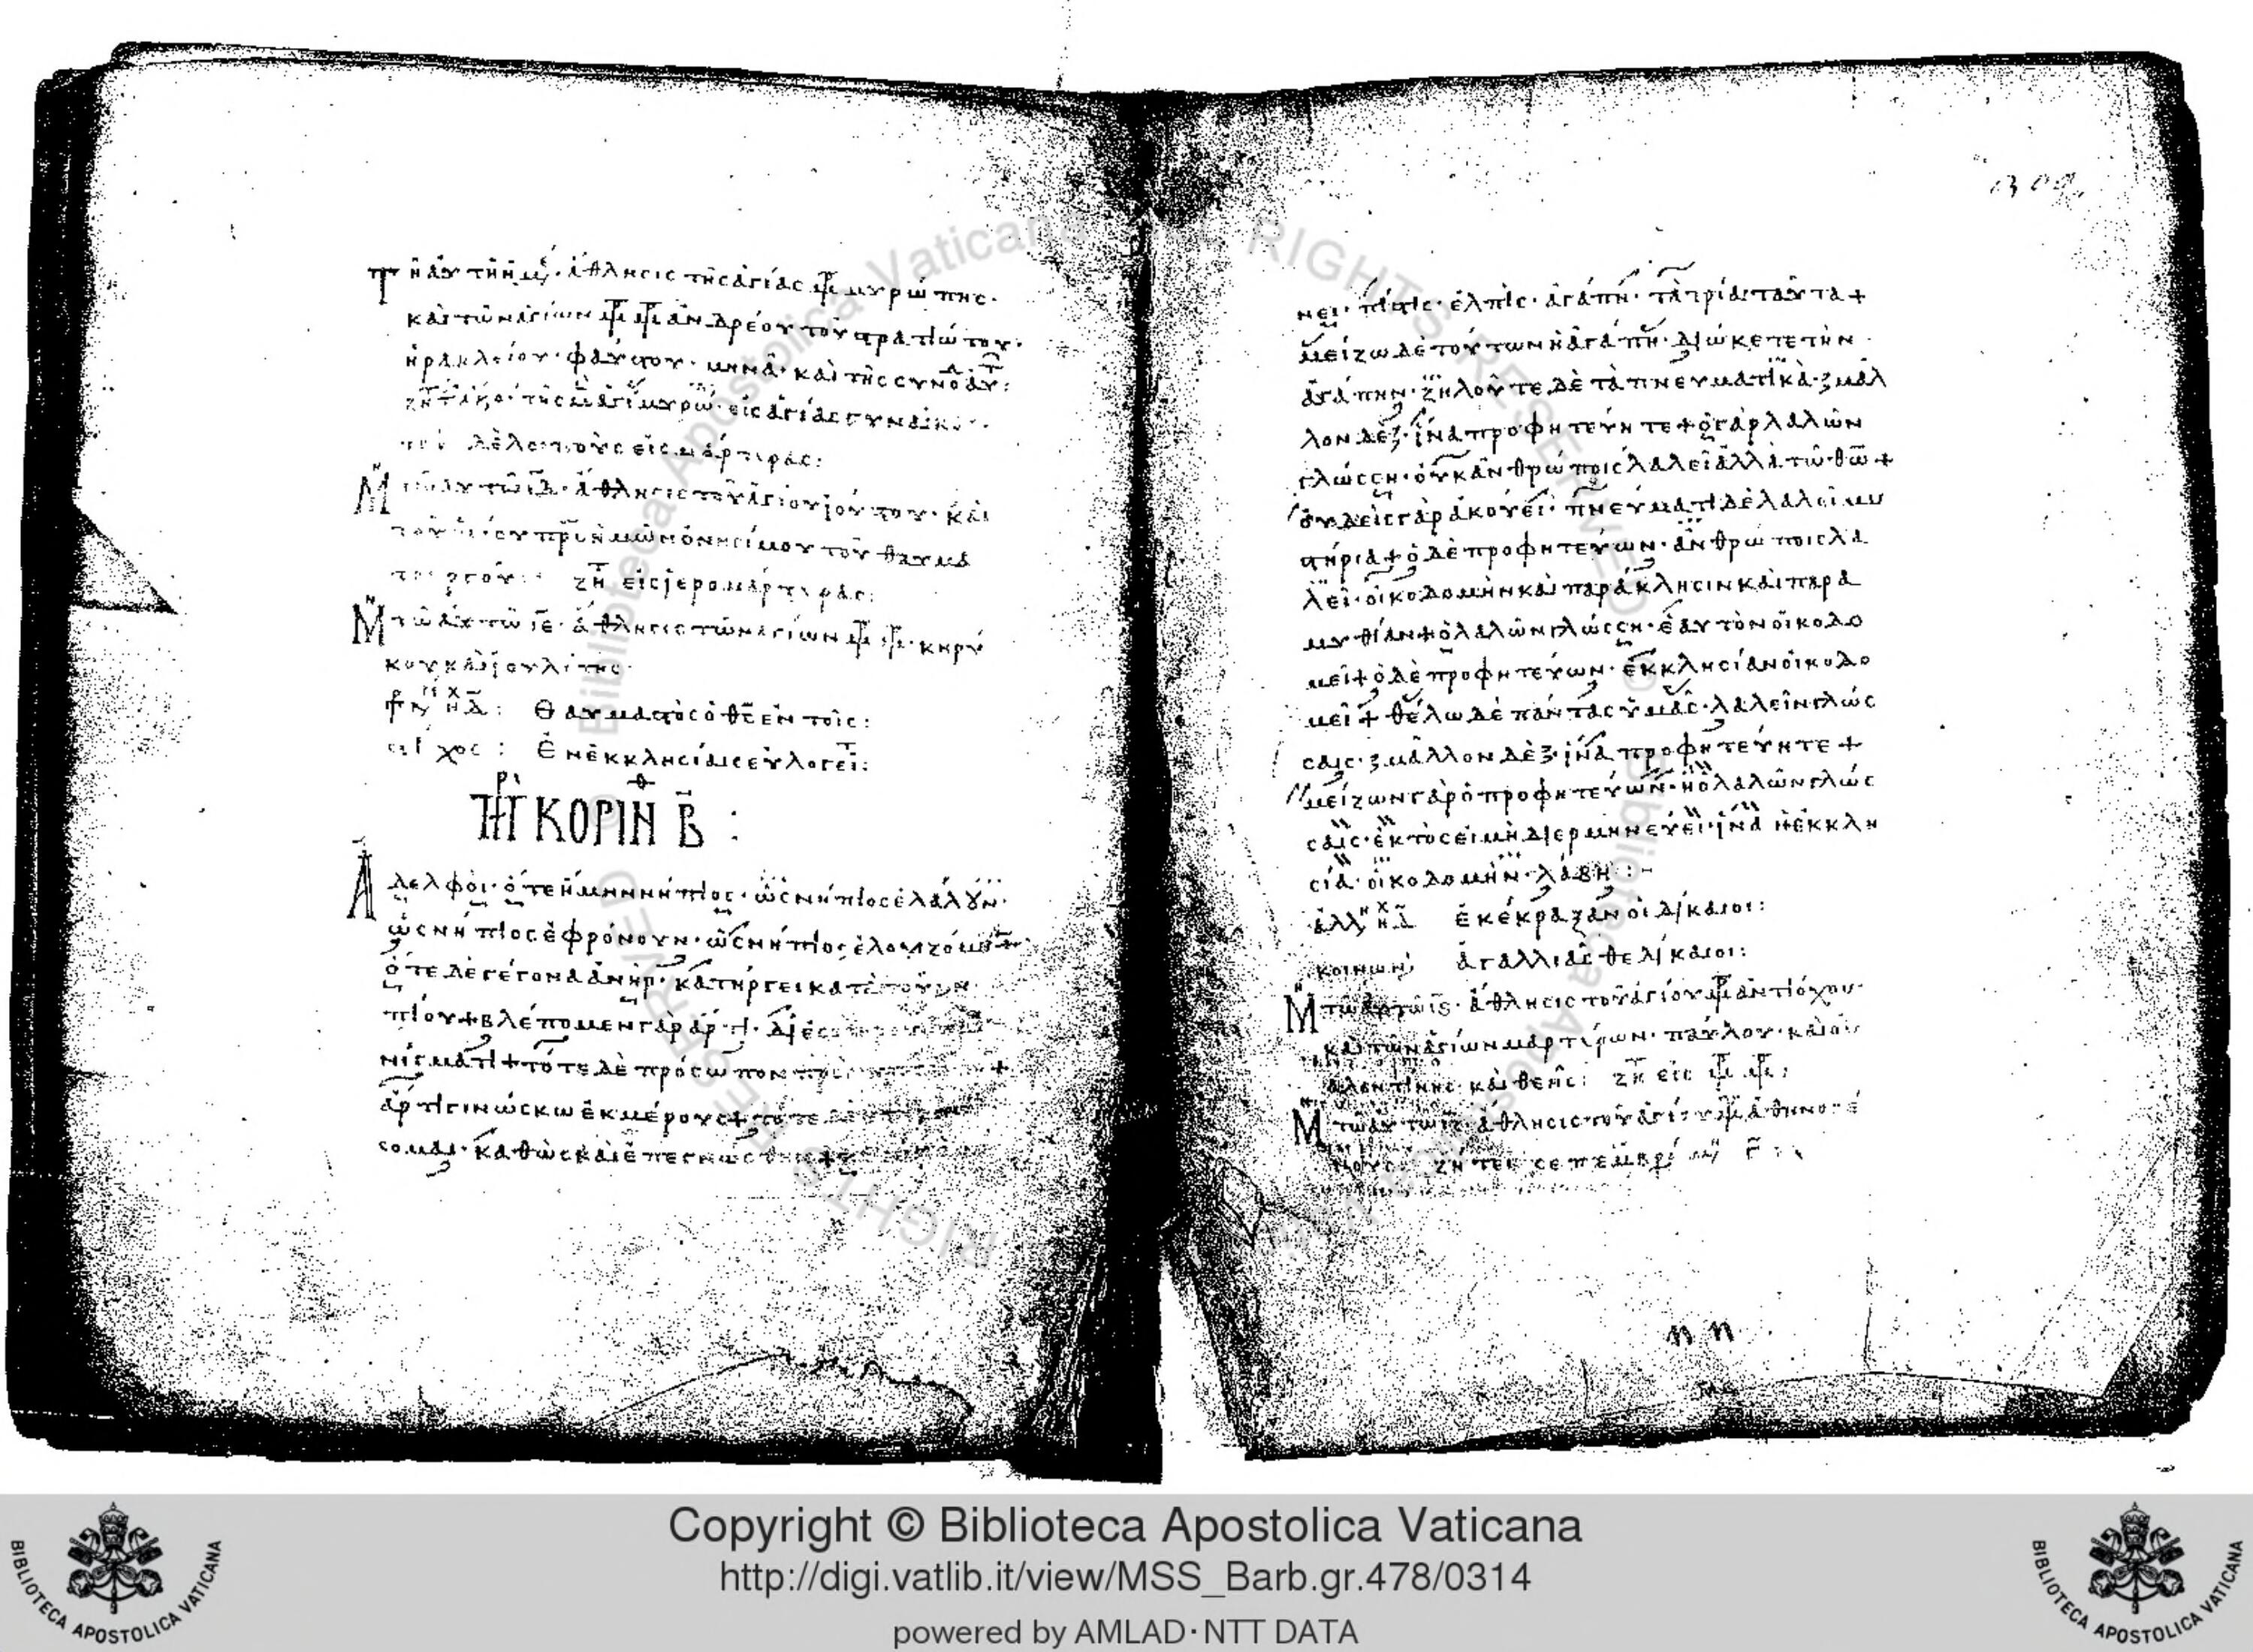 ἄθλησις τῆς ἁγίας μυρώπης·
καὶ τῶν ἁγίων ἀνδρέου τοῦ στρατιώτου·
ἡρακλείου· φαύστου· μηνᾶ· καὶ τῆς συνοδ αυτ:
εἰς ἁγίας γυναίκ
εἰς μάρτυρας:
Μ τῶ αυτῶ ιδ· ἄθλησις τοῦ ἁγίου ἰούστου· καὶ
ὀνησίμου τοῦ θαυμα
τουργοῦ: ζητ εἰς ἱερομάρτυρας:
Μ τῶ αυτῶ ιε· ἄθλησις τῶν ἁγίων κηρύ
κου καὶ ἰουλίτης·
Θαυμαστὸς ὁ θς ἐν τοῖς:
στίχος: Ἐν ἐκκλησίαις εὐλογεῖτ:
ΠΡ ΚΟΡΙΝΘ Β:
Ἀδελφοὶ· ὅτε ἤμην νήπιος· ὡς νήπιος ἐλάλουν·
ὡς νήπιος ἐφρόνουν· ὡς νήπιος ἐλογιζόμην+
ὅτε δὲ γέγονα ἀνὴρ· κατήργεικα τὰ τοῦ νη
πίου+βλέπομεν γὰρ ἄρτι· δι ἐσ
νίγματι+τότε δὲ πρόσωπον +
ἄρτι γινώσκω ἐκ μέρους+τότε
σομαι· καθὼς καὶ ἐπεγνώσθην+
νει· πίστις· ἐλπὶς· ἀγάπη· τὰ τρία ταῦτα+
μείζω δὲ τούτων ἡ ἀγάπη· διώκετε τὴν
ἀγάπην· ζηλοῦτε δὲ τὰ πνευματικὰ· μᾶλ
λον δὲ· ἵνα προφητεύητε+ὁ γὰρ λαλῶν
γλώσση· οὐκ ἀνθρώποις λαλεῖ ἀλλὰ τῶ θω+
οὐδεὶς γὰρ ἀκούει· πνεύματι δὲ λαλεῖ μυ
στήρια+ὁ δὲ προφητεύων· ἀνθρώποις λα
λεῖ· οἰκοδομὴν καὶ παράκλησιν καὶ παρα
μυθίαν+ὁ λαλῶν γλώσση· ἑαυτὸν οἰκοδο
μεῖ+ὁ δὲ προφητεύων· ἐκκλησίαν οἰκοδο
μεῖ+θέλω δὲ πάντας ὑμᾶς· λαλεῖν γλώσ
σαις· μᾶλλον δὲ· ἵνα προφητεύητε+
μείζων γὰρ ὁ προφητεύων· ἢ ὁ λαλῶν γλώσ
σαις· ἐκτὸς εἰ μὴ διερμηνεύει· ἵνα ἡ ἐκκλη
σία· οἰκοδομὴν· λάβη:-
ἐκέκραξαν οἱ δίκαιοι:
κοινων ἀγαλλιᾶσθε δίκαιοι:
Μ τῶ αυτῶ ις· ἄθλησις τοῦ ἁγίου ἀντιόχου·
καὶ τῶν ἁγίων μαρτύρων· παύλου·
ἀλεντίνης· καὶ θεῆς: ζητ εἰς
Μ τῶ αυτῶ ιζ· ἄθλησις τοῦ ἁγίου ἀθηνογέ
νους: σεπτεμβρί
Copyright © Biblioteca Apostolica Vaticana
http://digi.vatlib.it/view/MSS_Barb.gr.478/0314
powered by AMLAD·NTT DATA
BIBLIOTECA APOSTOLICA VATICANA
BIBLIOTECA APOSTOLICA VATICANA